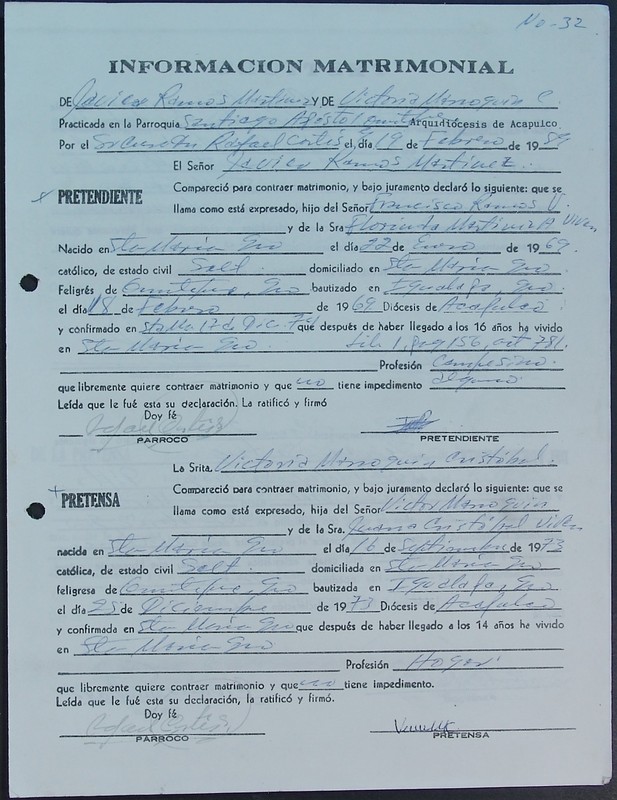 No-32
INFORMACION MATRIMONIAL
DE Javier Ramos Martinez Y DE Victoria Marroquin C.
Practicada en la Parroquia Santiago Apóstol Arquidiócesis de Acapulco.
Por el Sr Cura Rafael Cortés el día 19 de Febrero de 1989
El Señor Javier Ramos Martinez.
PRETENDIENTE
Compareció para contraer matrimonio, y bajo juramento declaró lo siguiente: que se
llama como está expresado, hijo del Señor Francisco Ramos V.
y de la Sra Florinda Martinez A Viven
Nacido en Sta Maria Gro el día 22 de Enero de 1969.
católico, de estado civil Solt. domiciliado en Sta Maria Gro.
Feligrés de Ometepec, Gro bautizado en Igualapa, Gro.
el día 18 de Febrero de 1969 Diócesis de Acapulco
y confirmado en Sta Ma 17 de Dic. 74 que después de haber llegado a los 16 años ha vivido
en Sta Maria Gro. Lib. 1, pag 156, act 781.
Profesión Campesino.
que libremente quiere contraer matrimonio y que no tiene impedimento alguno.
Leída que le fué esta su declaración. La ratificó y firmó
Doy fé
Rafael Cortés
PARROCO
PRETENDIENTE
La Srita. Victoria Marroquin Cristóbal.
PRETENSA
Compareció para contraer matrimonio, y bajo juramento declaró lo siguiente: que se
llama como está expresado, hijo del Señor Victor Marroquin
y de la Sra. Juana Cristóbal Viven
nacida en Sta Maria Gro el día 16 de Septiembre de 1973
católica, de estado civil Solt. domiciliada en Sta Maria Gro
feligresa de Ometepec, Gro bautizada en Igualapa, Gro
el día 25 de Diciembre de 1973 Diócesis de Acapulco
y confirmada en Sta Maria Gro que después de haber llegado a los 14 años ha vivido
en Sta Maria Gro
Profesión Hogar.
que libremente quiere contraer matrimonio y que no tiene impedimento.
Leída que le fué esta su declaración, la ratificó y firmó.
Doy fé
Rafael Cortés
PARROCO
PRETENSA